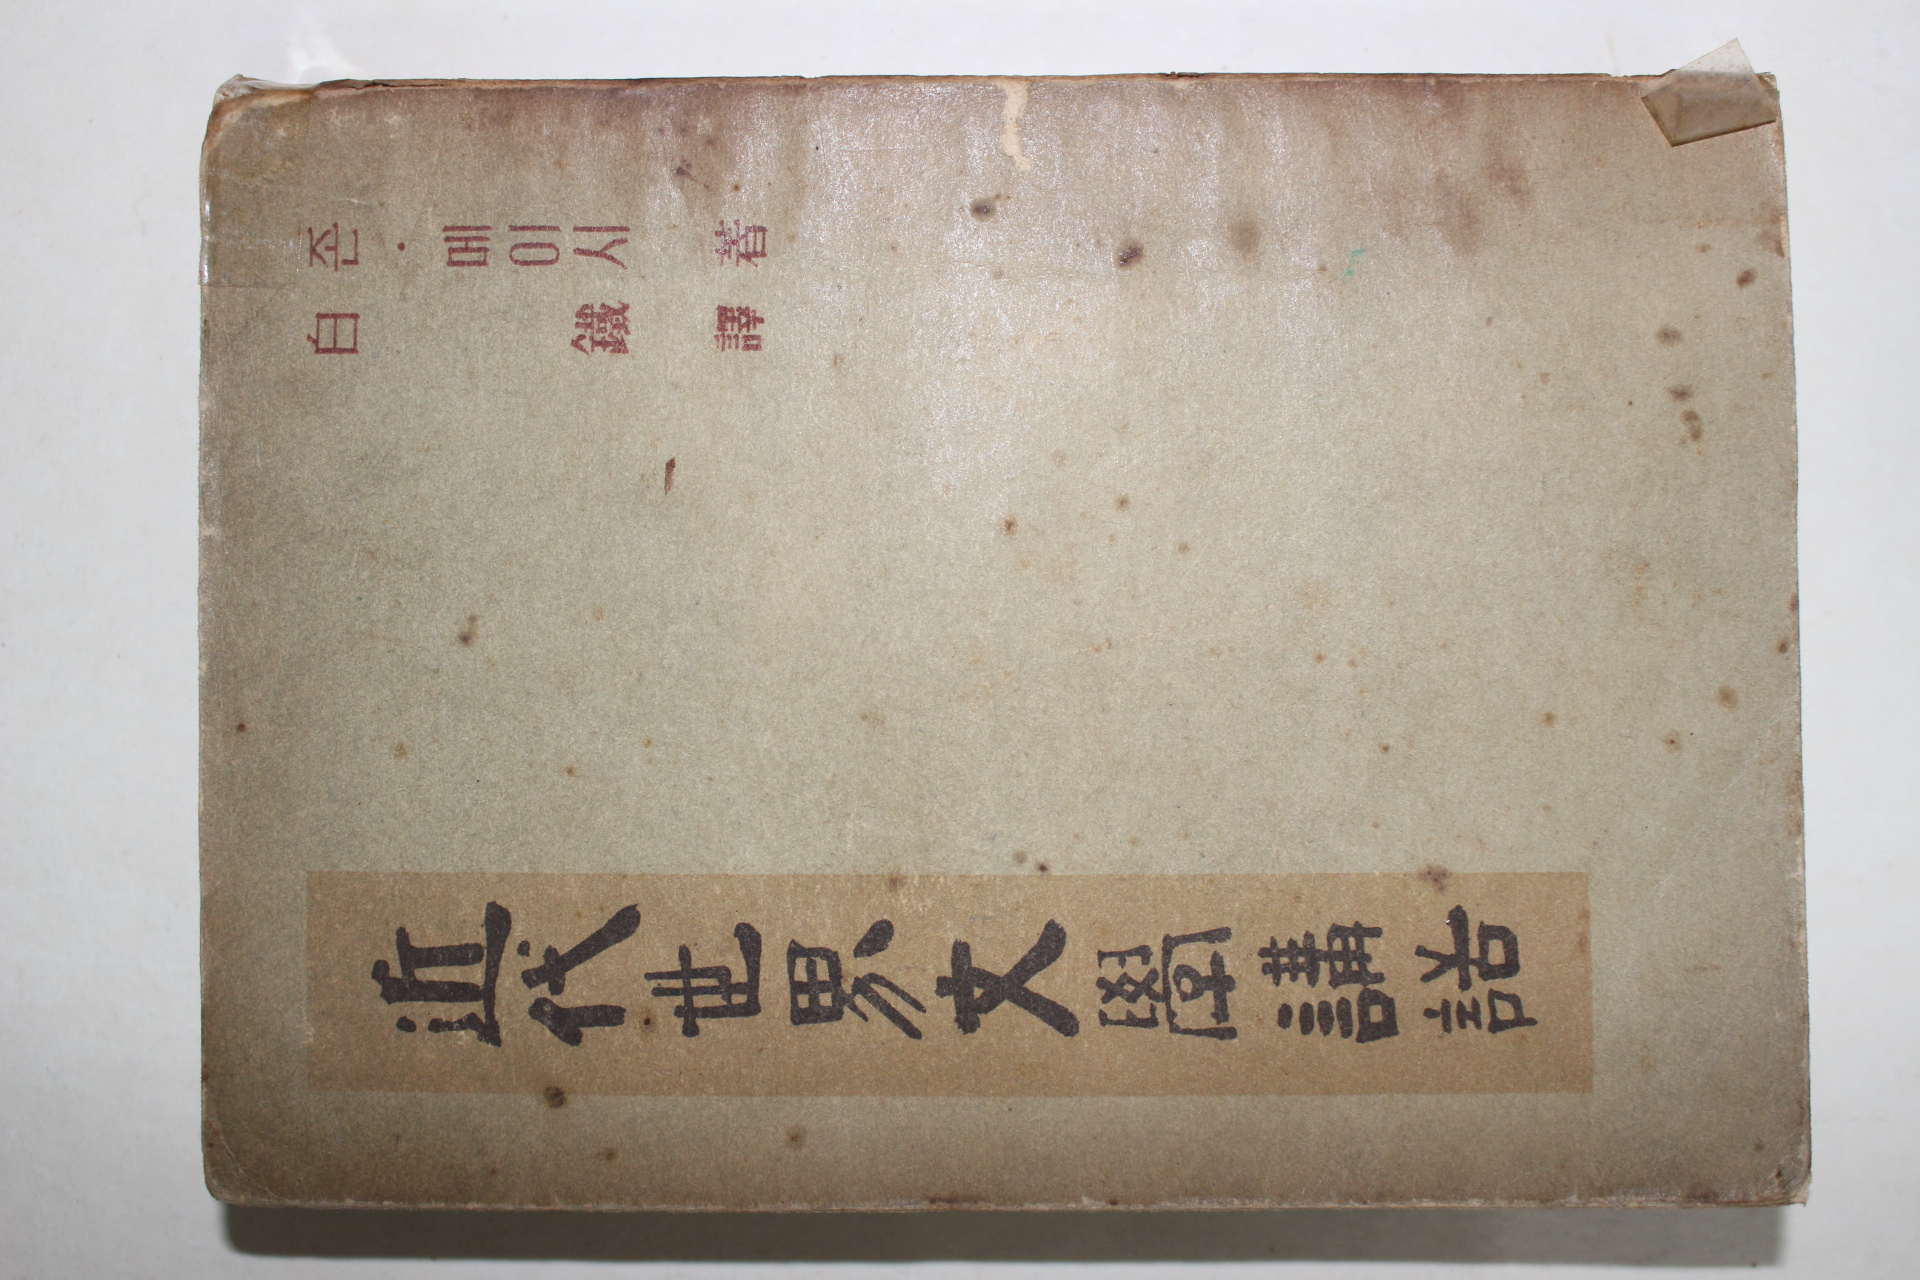 존·메이시 著
白鐵 譯
近代世界文學講話